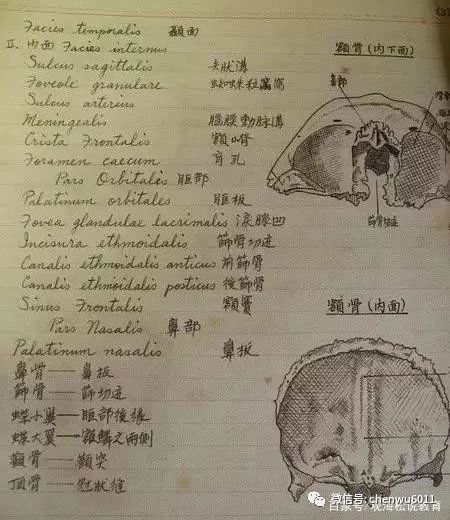 Facies temporalis 顳面
II. 内面 Facies internus
Sulcus sagittalis 矢狀溝
Foveole granulare 蜘蛛粒窩
Sulcus arterius
Meningealis 腦膜動脈溝
Crista Frontalis 額嵴
Foramen caecum 盲孔
Pars Orbitalis 眶部
Palatinum orbitales 眶板
Fovea glandulae lacrimalis 淚腺凹
Incisura ethmoidalis 篩骨切迹
Canalis ethmoidalis anticus 前篩骨
Canalis ethmoidalis posticus 後篩骨
Sinus Frontalis 額竇
Pars Nasalis 鼻部
Palatinum nasalis 鼻板
鼻骨——鼻板
篩骨——篩切迹
蝶小翼——眶部後緣
蝶大翼——額鱗之兩側
顴骨——顴突
頂骨——冠狀縫
額骨(内下面)
鼻部
篩骨切迹
額骨(内面)
微信号: chenwu6011
百家号/观海松说教育